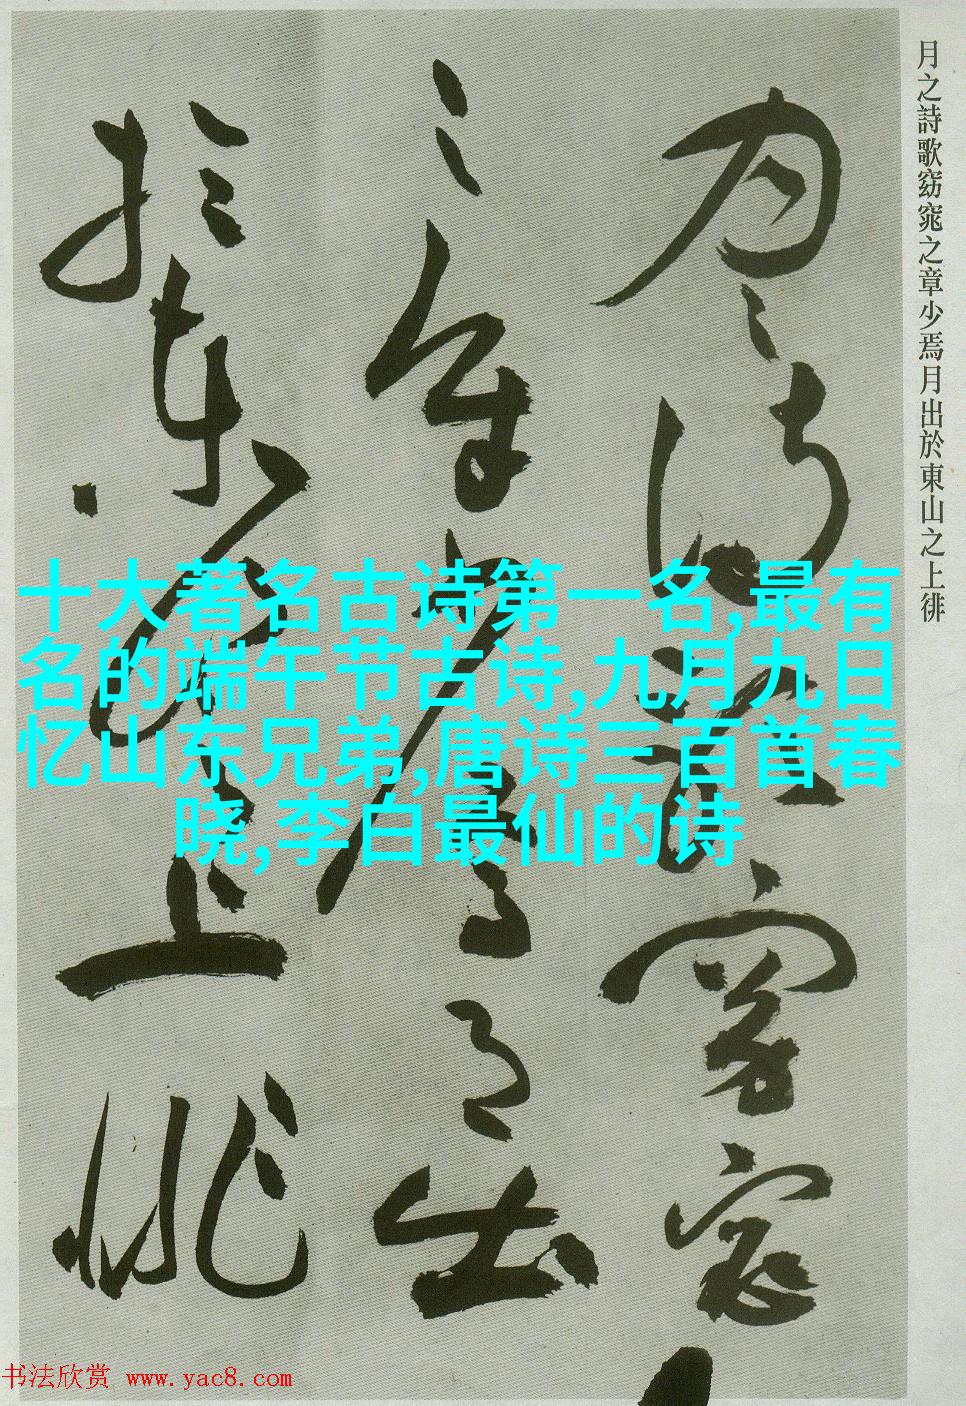 月之詩歌窈窕之章少焉月出於東山之上徘
月之詩歌窈窕
之章少焉月出
於東山之上徘
十大著名古诗第一名,最有
名的端午节古诗,九月九日
忆山东兄弟,唐诗三百首春
晓,李白最仙的诗
书法欣赏 www.yac8.com